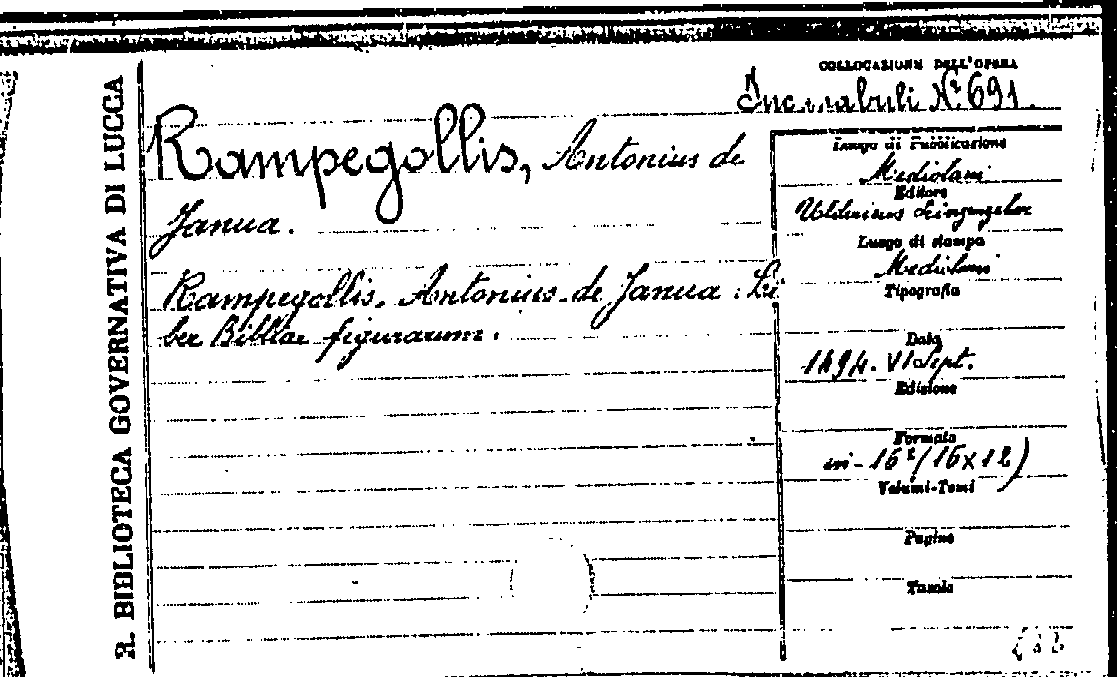 R. BIBLIOTECA GOVERNATIVA DI LUCCA
COLLOCAZIONE DELL'OPERA
Incunabuli Nº 691.
Rampegollis, Antonius de
Janua.
Rampegollis, Antonius de Janua: Li
ber Bibliae figurarum.
Luogo di Pubblicazione
Mediolani
Editore
Uldericus Scinzenzeler
Luogo di stampa
Mediolani
Tipografia
Data
1494. VI Sept.
Edizione
Formato
in-16º (16x12)
Volumi-Tomi
Pagine
Tavole